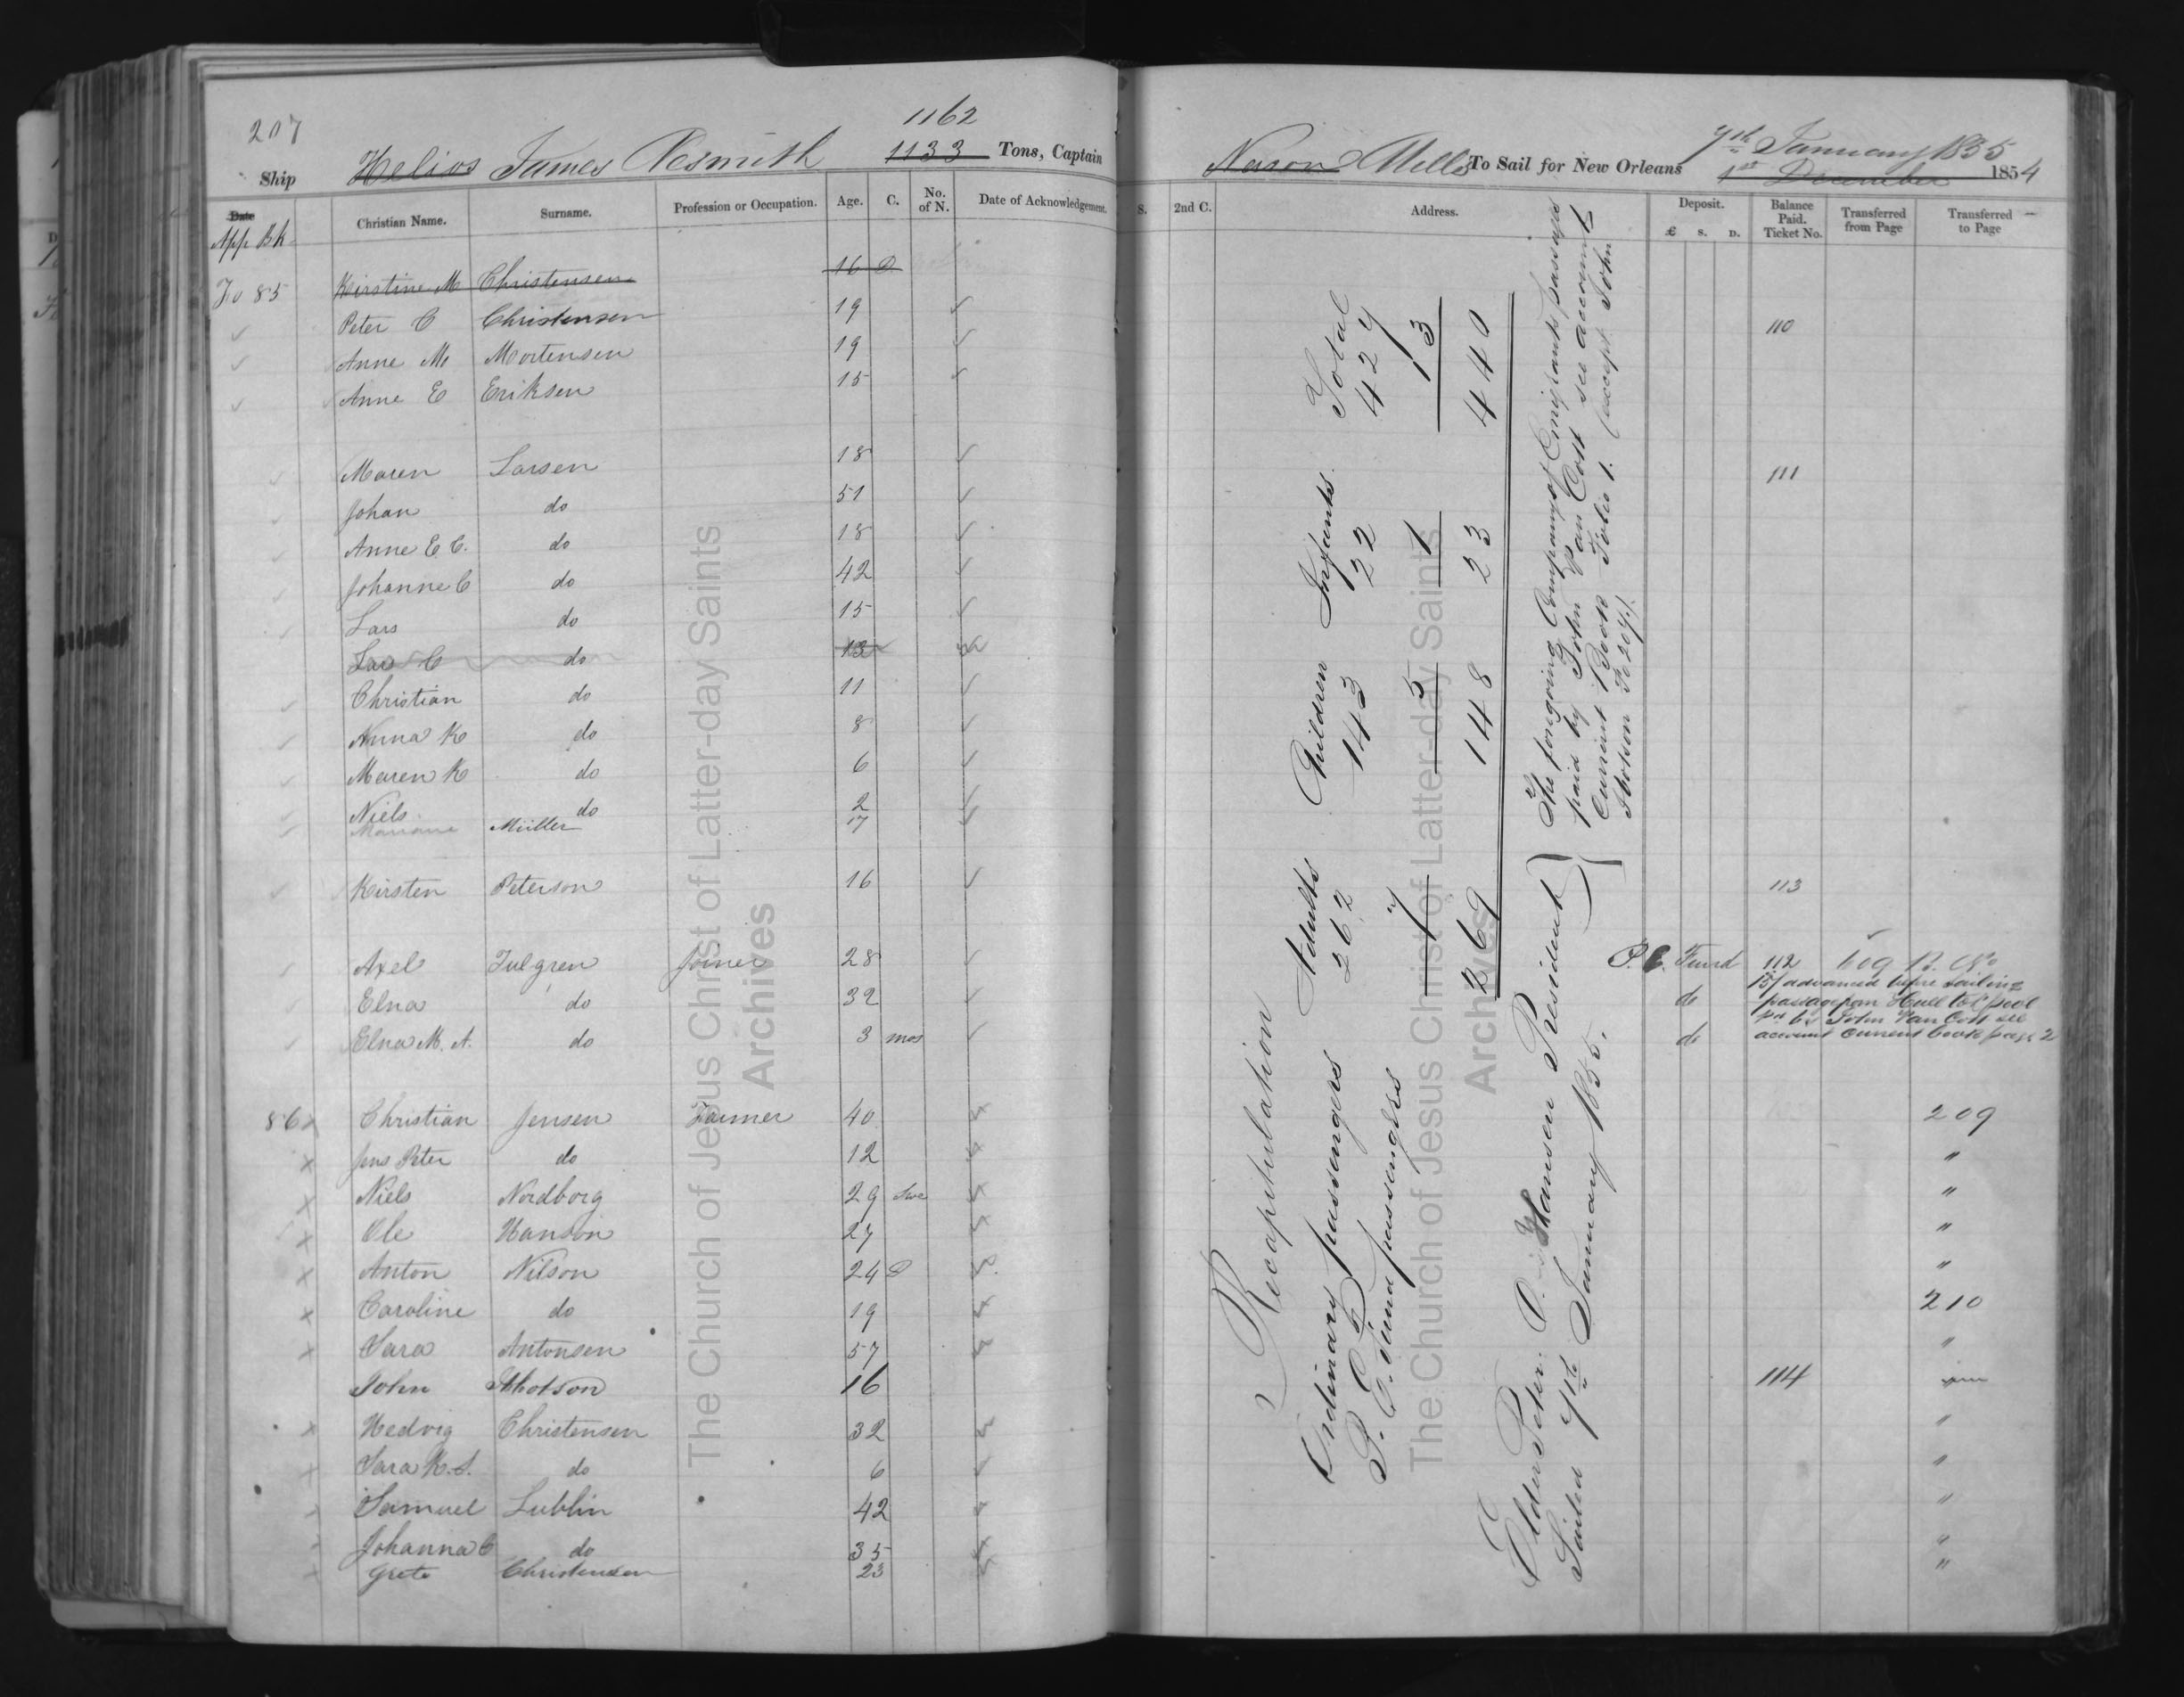 207
1162
Ship Helios James Nesmith 1133 Tons, Captain
Date Christian Name. Surname. Profession or Occupation. Age. C. No. of N. Date of Acknowledgement.
App Bk
Fo 85 Kirstine M Christensen 16 D
Peter C Christensen 19
Anne M Mortensen 19
Anne E Eriksen 15
Maren Larsen 18
Johan do 51
Anne E C. do 18
Johanne C do 42
Lars do 15
Lars C do 13
Christian do 11
Anna K do 8
Maren K do 6
Niels do 2
Mariane Müller 17
Kirsten Peterson 16
Axel Tulgren Joiner 28
Elna do 32
Elna M. A. do 3 mos
86 Christian Jensen Farmer 40
Jens Peter do 12
Niels Nordborg 29 Swe
Ole Hanson 27
Anton Nilson 24 D
Caroline do 19
Sara Antonsen 57
John Ibotson 16
Hedvig Christensen 32
Sara K. S. do 6
Samuel Lublin 42
Johanna C do 35
Grete Christensen 23
The Church of Jesus Christ of Latter-day Saints
Archives
7th January 1855
Mills To Sail for New Orleans 1st December 1854
S. 2nd C. Address. Deposit. £ S. D. Balance Paid. Ticket No. Transferred from Page Transferred to Page
110
111
113
P. E. Fund 112
do 15/ advanced before sailing
passage from Hull to L'pool
pd by John Van Cott see
do account Current book page 2
209
"
"
"
"
210
"
114
"
"
"
"
"
Recapitulation
Adults Children Infants Total
Ordinary passengers 262 143 22 427
P. E. Fund passengers 7 5 1 13
269 148 23 440
Elder Peter O. Hansen President
Sailed 7th January 1855.
The foregoing Company of Emigrants passage
paid by John Van Cott see account
Current Book Folio 1. (except John
Ibotson Fo 207.)
The Church of Jesus Christ of Latter-day Saints
Archives